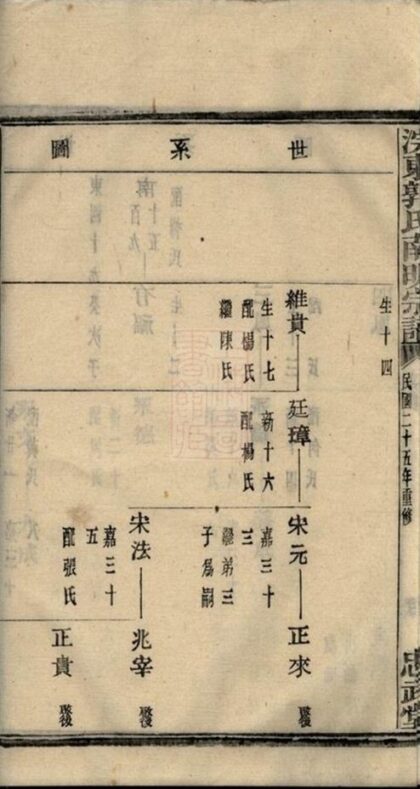 東郭氏南明宗譜
民國二十五年重修
忠武堂
世系圖
生十四
維貴
生十七
配楊氏
繼陳氏
廷璋
新十六
配楊氏
宋元
嘉三十
三
繼弟三
子為嗣
正來
宋法
嘉三十
五
配張氏
兆宰
正貴